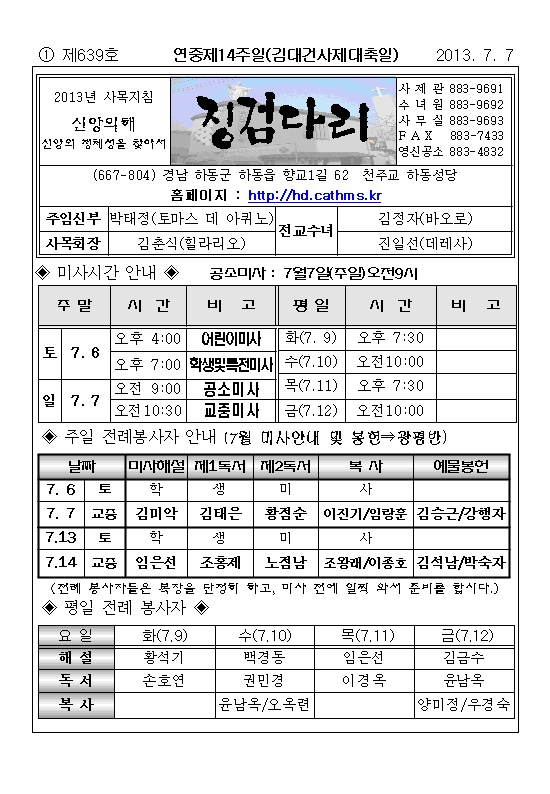 ① 제639호 연중제14주일(김대건사제대축일) 2013. 7. 7
2013년 사목지침
신앙의해
신앙의 정체성을 찾아서
징검다리
사 제 관 883-9691
수 녀 원 883-9692
사 무 실 883-9693
F A X 883-7433
영신공소 883-4832
(667-804) 경남 하동군 하동읍 향교1길 62 천주교 하동성당
홈페이지 : http://hd.cathms.kr
주임신부 박태정(토마스 데 아퀴노) 전교수녀 김정자(바오로)
사목회장 김춘식(힐라리오) 진일선(데레사)
◈ 미사시간 안내 ◈ 공소미사 : 7월7일(주일)오전9시
주 말 시 간 비 고 평 일 시 간 비 고
토 7. 6 오후 4:00 어린이미사 화(7. 9) 오후 7:30
오후 7:00 학생및특전미사 수(7.10) 오전10:00
일 7. 7 오전 9:00 공소미사 목(7.11) 오후 7:30
오전10:30 교중미사 금(7.12) 오전10:00
◈ 주일 전례봉사자 안내 (7월 미사안내 및 봉헌⇒광평반)
날짜 미사해설 제1독서 제2독서 복 사 예물봉헌
7. 6 토 학 생 미 사
7. 7 교중 김미악 김태은 황점순 이진기/임랑훈 김승근/강행자
7.13 토 학 생 미 사
7.14 교중 임은선 조홍제 노점남 조왕래/이종호 김석남/박숙자
(전례 봉사자들은 복장을 단정히 하고, 미사 전에 일찍 와서 준비를 합시다.)
◈ 평일 전례 봉사자 ◈
요 일 화(7.9) 수(7.10) 목(7.11) 금(7.12)
해 설 황석기 백경동 임은선 김금수
독 서 손호연 권민경 이경옥 윤남옥
복 사 윤남옥/오옥련 양미정/우경숙